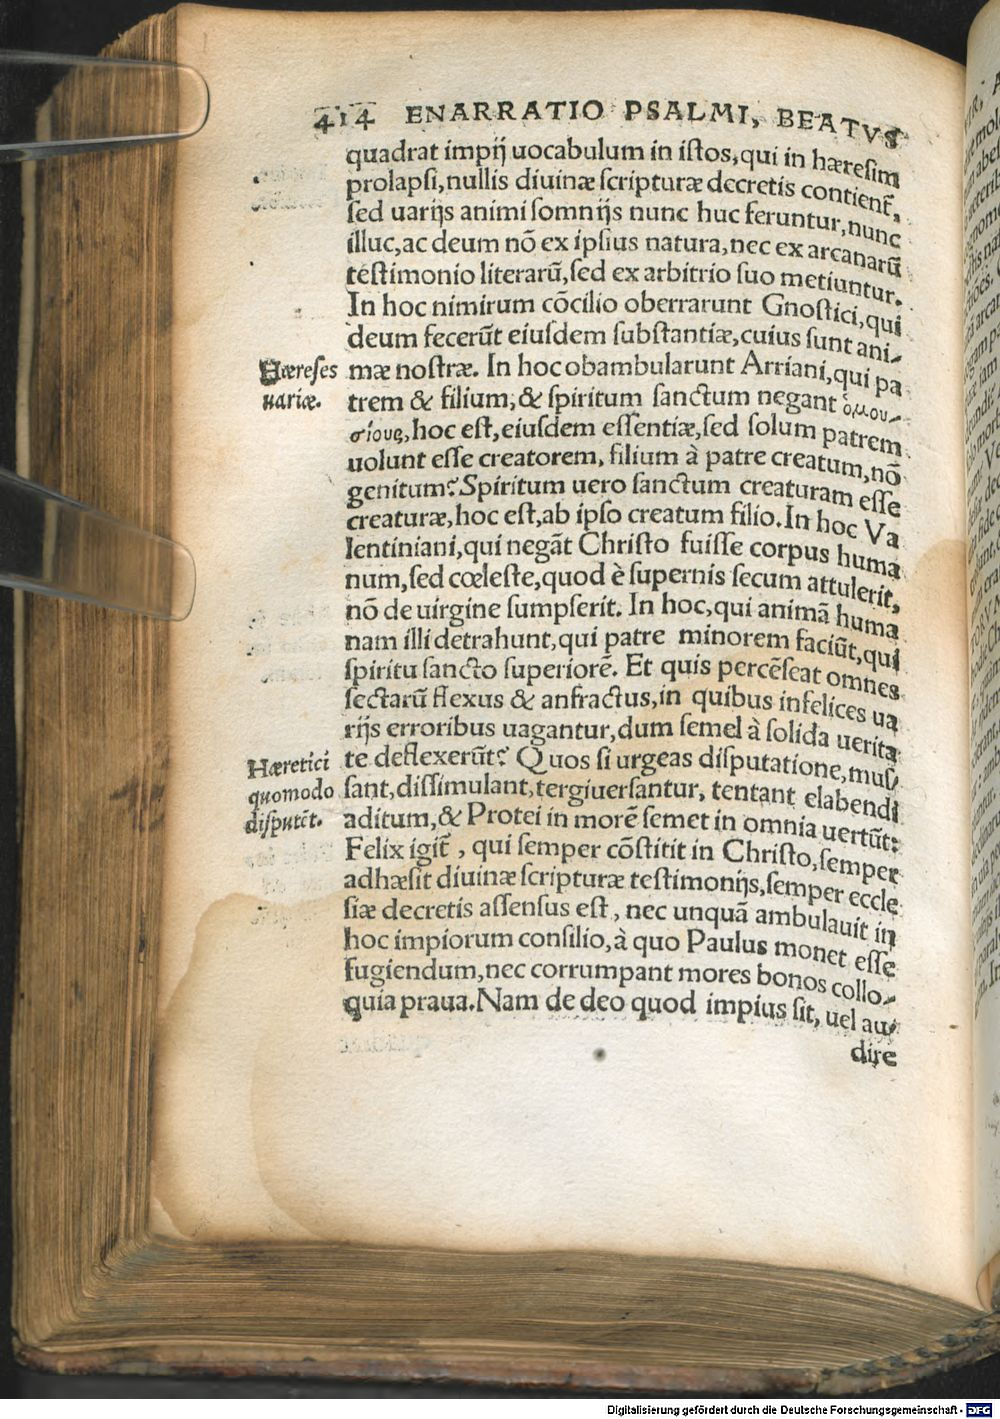 414 ENARRATIO PSALMI, BEATVS
quadrat impij uocabulum in istos, qui in hæresim
prolapsi, nullis diuinæ scripturæ decretis contient᷑,
sed uarijs animi somnijs nunc huc feruntur, nunc
illuc, ac deum nõ ex ipsius natura, nec ex arcanarũ
testimonio literarũ, sed ex arbitrio suo metiuntur.
In hoc nimirum cõcilio oberrarunt Gnostici, qui
deum fecerũt eiusdem substantiæ, cuius sunt ani-
Hæreses
uariæ.
mæ nostræ. In hoc obambularunt Arriani, qui pa
trem & filium, & spiritum sanctum negant ὁμου-
σίους, hoc est, eiusdem essentiæ, sed solum patrem
uolunt esse creatorem, filium à patre creatum, nõ
genitum? Spiritum uero sanctum creaturam esse
creaturæ, hoc est, ab ipso creatum filio. In hoc Va
lentiniani, qui negãt Christo fuisse corpus huma
num, sed cœleste, quod è supernis secum attulerit,
nõ de uirgine sumpserit. In hoc, qui animã huma
nam illi detrahunt, qui patre minorem faciũt, qui
spiritu sancto superiorẽ. Et quis percẽseat omnes
sectarũ flexus & anfractus, in quibus infelices ua
rijs erroribus uagantur, dum semel à solida uerita
Hæretici
quomodo
disputẽt.
te deflexerũt? Quos si urgeas disputatione, mus-
sant, dissimulant, tergiuersantur, tentant elabendi
aditum, & Protei in morẽ semet in omnia uertũt:
Felix igit᷑, qui semper cõstitit in Christo, semper
adhæsit diuinæ scripturæ testimonijs, semper eccle
siæ decretis assensus est, nec unquã ambulauit in
hoc impiorum consilio, à quo Paulus monet esse
fugiendum, nec corrumpant mores bonos collo-
quia praua. Nam de deo quod impius sit, uel au-
dire
Digitalisierung gefördert durch die Deutsche Forschungsgemeinschaft - DFG